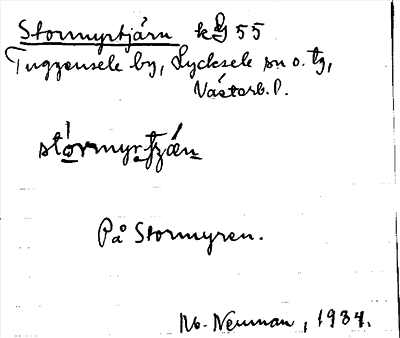 Stormyrtjärn kg 55
Tuggensele by, Lycksele sn o. tg,
Västerb. l.
stormyrtjæn
På Stormyren.
No. Neuman, 1934.